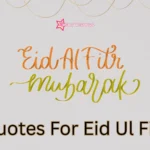 Eid Al Fitr
mubarak
uotes For Eid Ul F